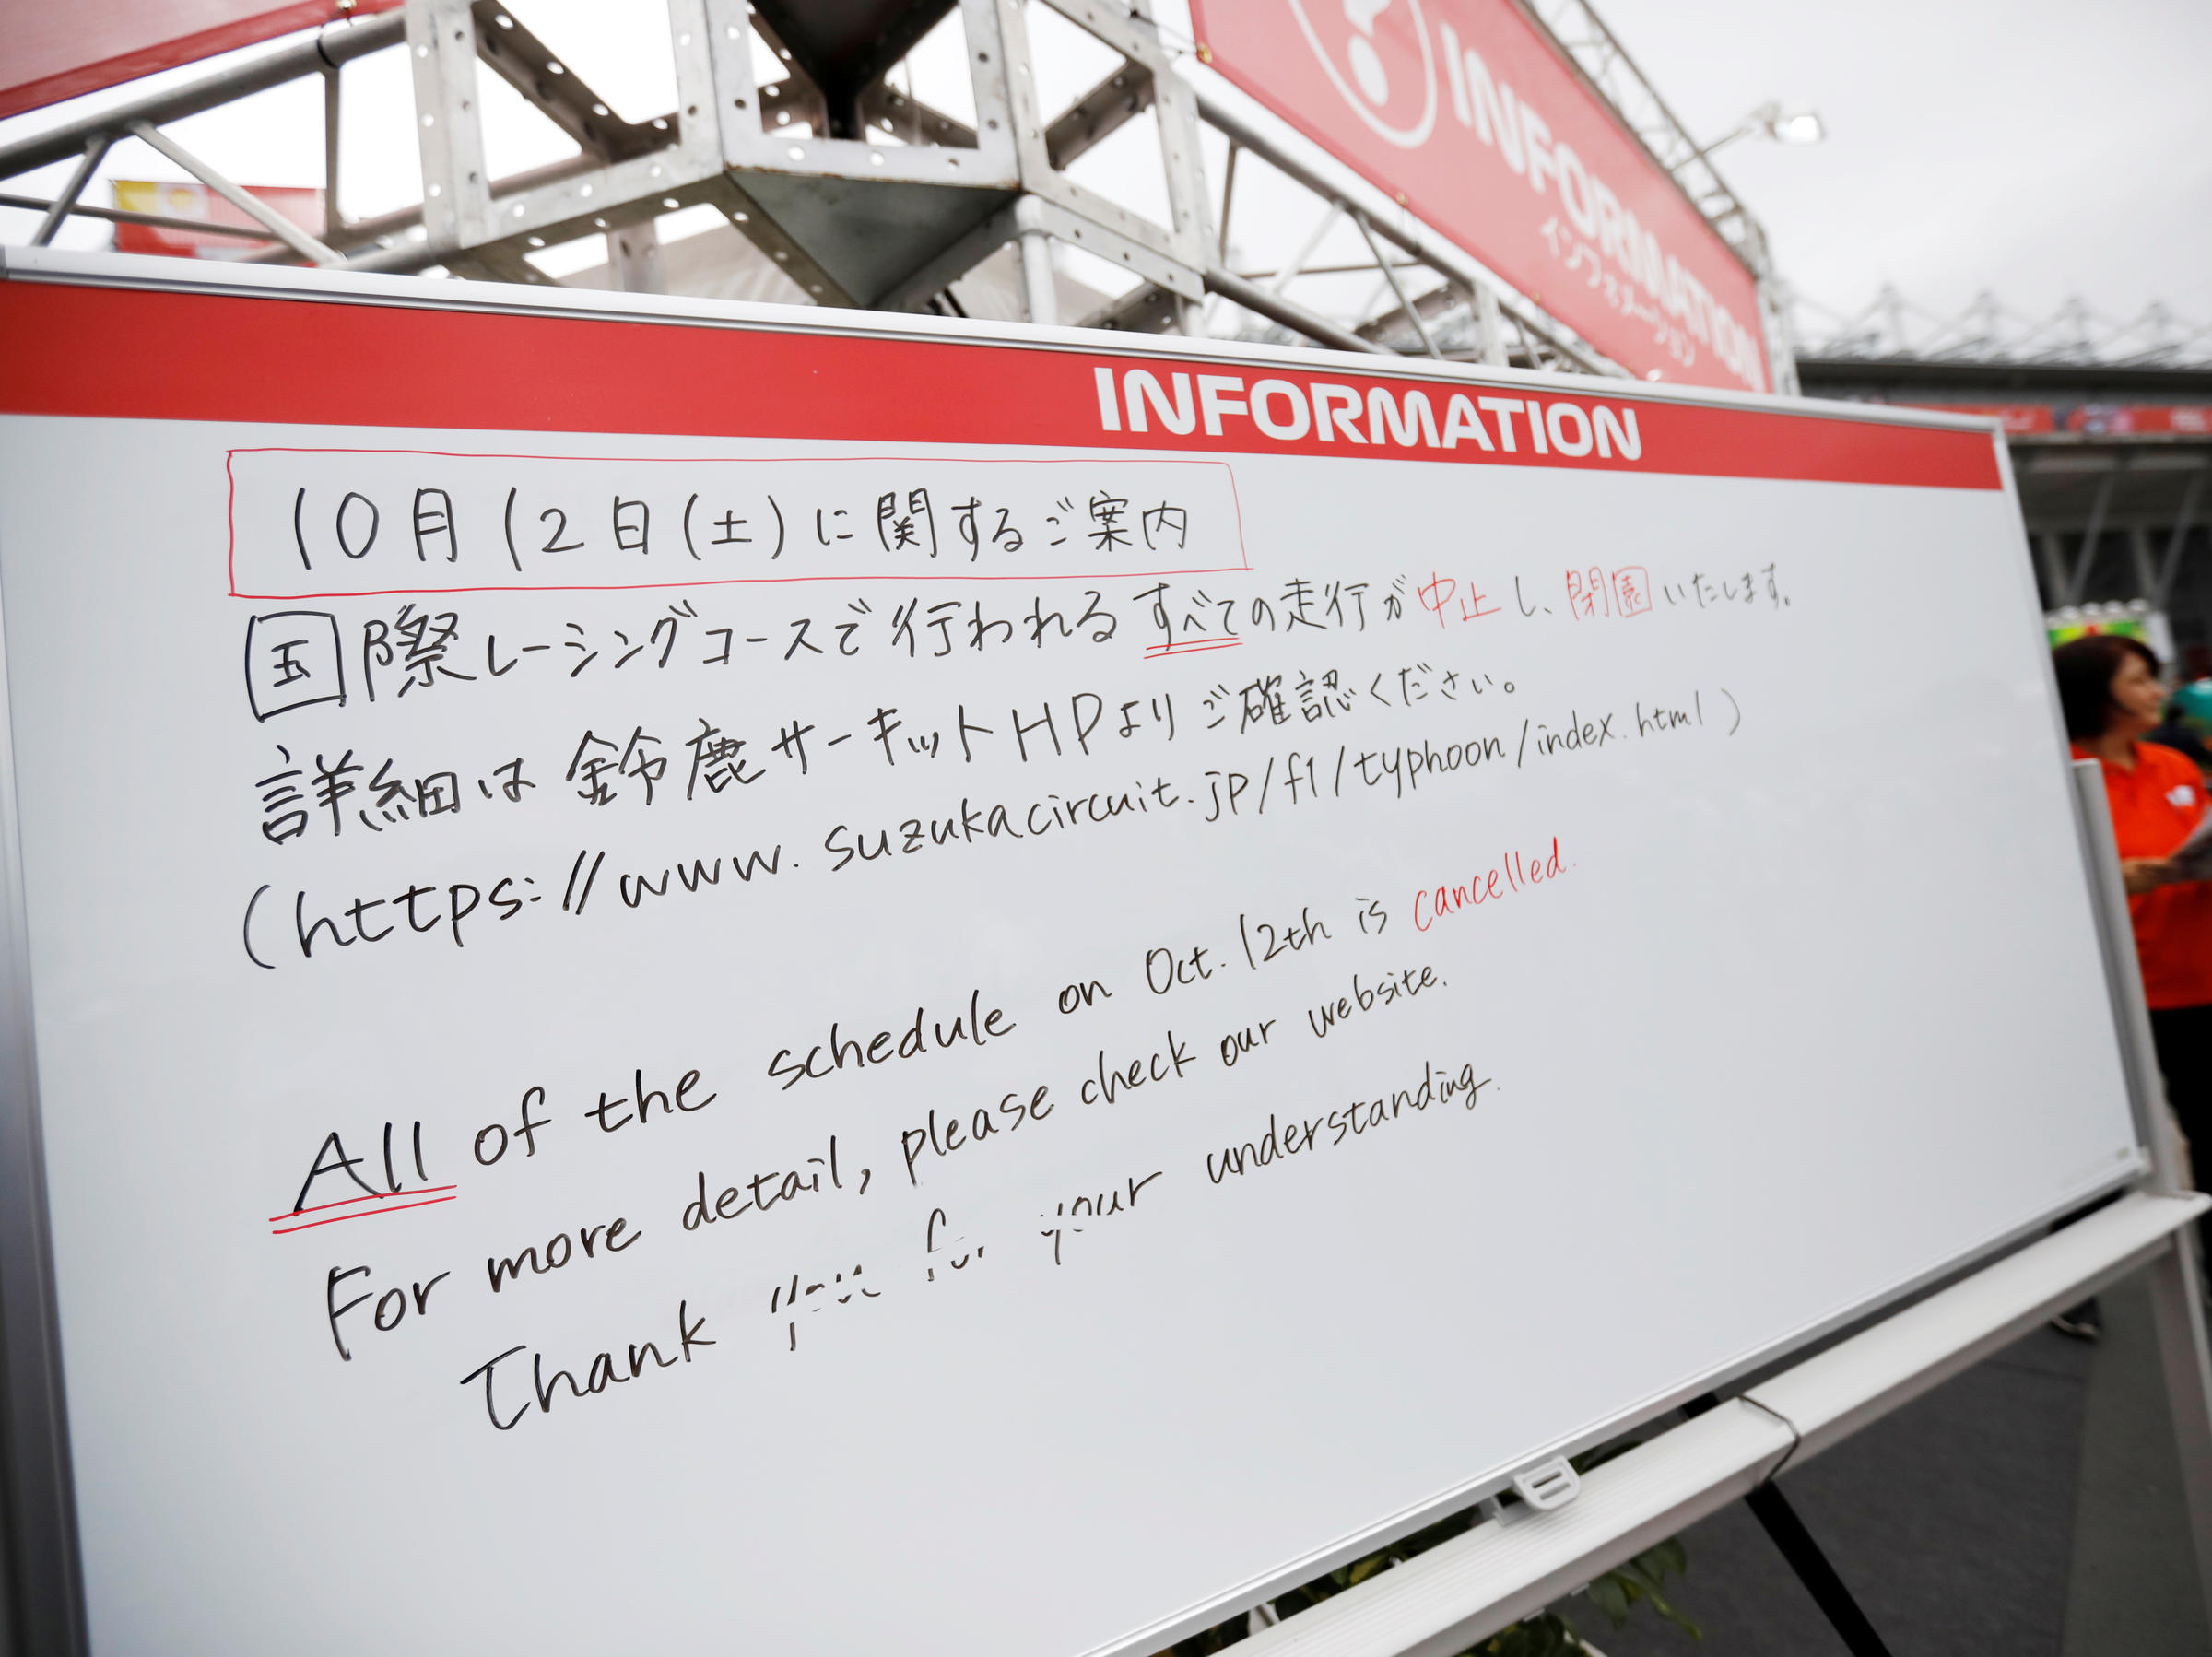 INFORMATION
インフォメーション
INFORMATION
10月12日(土)に関するご案内
国際レーシングコースで行われるすべての走行が中止し、閉園いたします。
詳細は鈴鹿サーキットHPよりご確認ください。
(https://www.suzukacircuit.jp/f1/typhoon/index.html)
All of the schedule on Oct. 12th is cancelled.
For more detail, please check our website.
Thank you for your understanding.